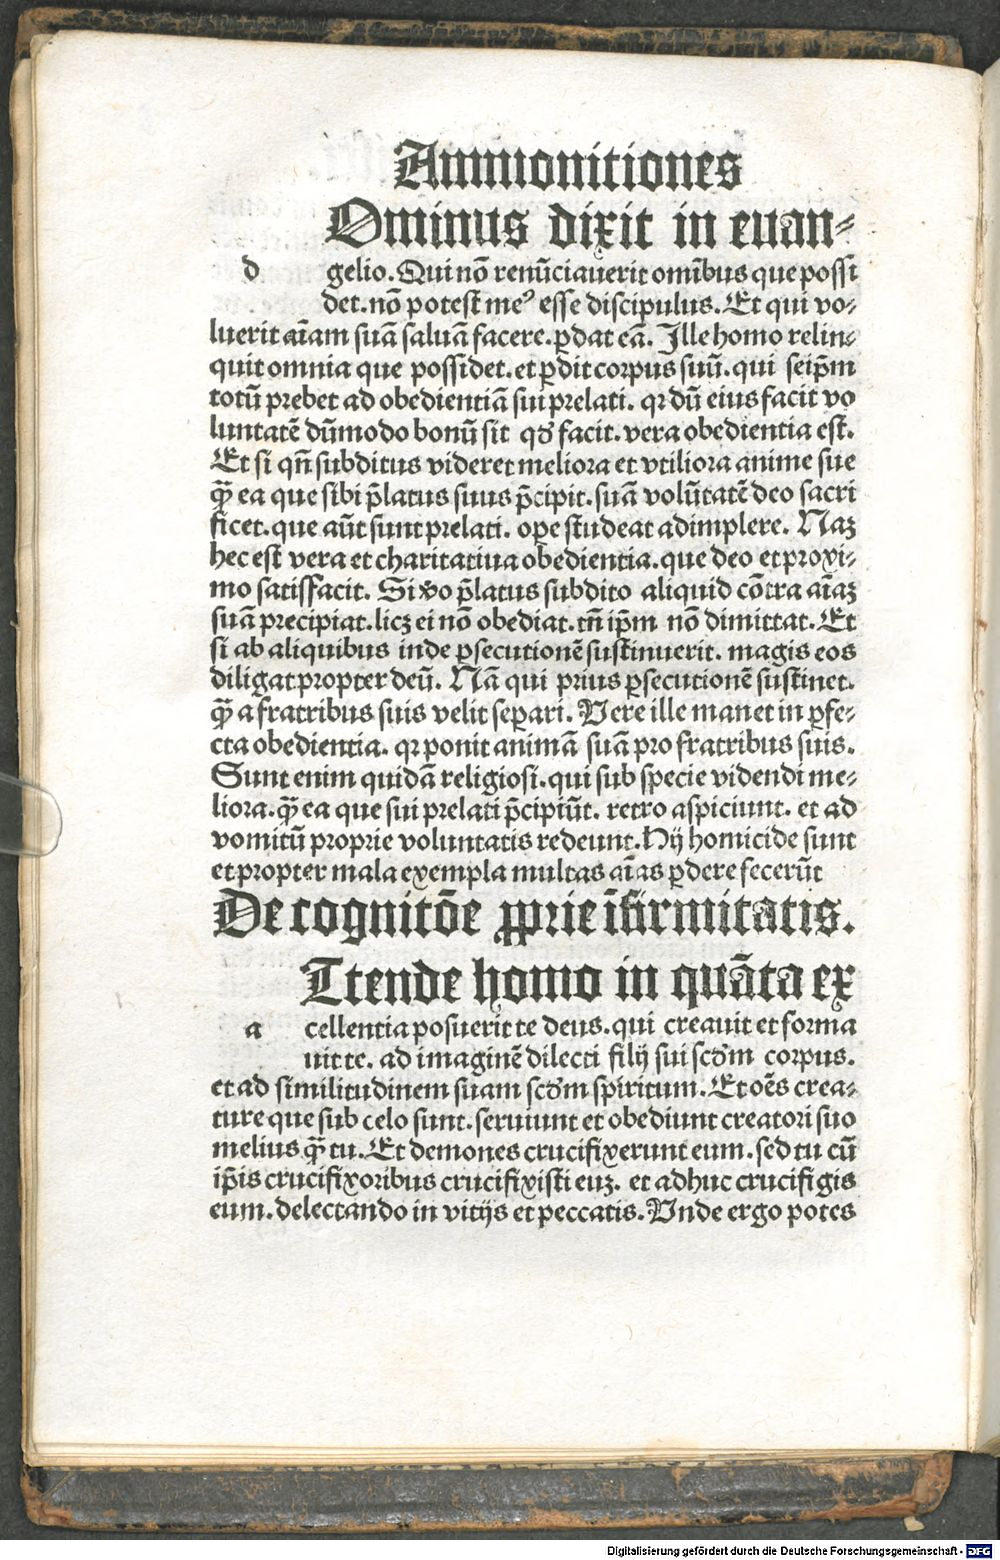 Ammonitiones
Ominus dixit in euan-
d gelio. Qui nō renūciauerit omībus que possi
det. nō potest meꝰ esse discipulus. Et qui vo-
luerit aīam suā saluā facere. ꝑdat eā. Ille homo relin-
quit omnia que possidet. et ꝑdit corpus suū. qui seip̄m
totū prebet ad obedientiā sui prelati. qꝛ dū eius facit vo
luntatē dūmodo bonū sit qđ facit. vera obedientia est.
Et si qn̄ subditus videret meliora et vtiliora anime sue
qꝫ̄ ea que sibi p̄latus suus p̄cipit. suā volūtatē deo sacri
ficet. que aūt sunt prelati. ope studeat adimplere. Naꝫ
hec est vera et charitatiua obedientia. que deo et proxi-
mo satisfacit. Si ṽo p̄latus subdito aliquid cōtra aīaꝫ
suā precipiat. licꝫ ei nō obediat. tn̄ ip̄m nō dimittat. Et
si ab aliquibus inde ꝑsecutionē sustinuerit. magis eos
diligat propter deū. Nā qui prius ꝑsecutionē sustinet.
qꝫ̄ a fratribus suis velit seꝑari. Vere ille manet in ꝑfe-
cta obedientia. qꝛ ponit animā suā pro fratribus suis.
Sunt enim quidā religiosi. qui sub specie videndi me-
liora. qꝫ̄ ea que sui prelati p̄cipiūt. retro aspiciunt. et ad
vomitū proprie voluntatis redeunt. Hij homicide sunt
et propter mala exempla multas aīas ꝑdere fecerūt
De cognitōe ꝓprie īfirmitatis.
Ttende homo in quāta ex
a cellentia posuerit te deus. qui creauit et forma
uit te. ad imaginē dilecti filij sui scđm corpus.
et ad similitudinem suam scđm spiritum. Et oēs crea-
ture que sub celo sunt. seruiunt et obediunt creatori suo
melius qꝫ̄ tu. Et demones crucifixerunt eum. sed tu cū
ip̄is crucifixoribus crucifixisti euꝫ. et adhuc crucifigis
eum. delectando in vitijs et peccatis. Vnde ergo potes
Digitalisierung gefördert durch die Deutsche Forschungsgemeinschaft - DFG